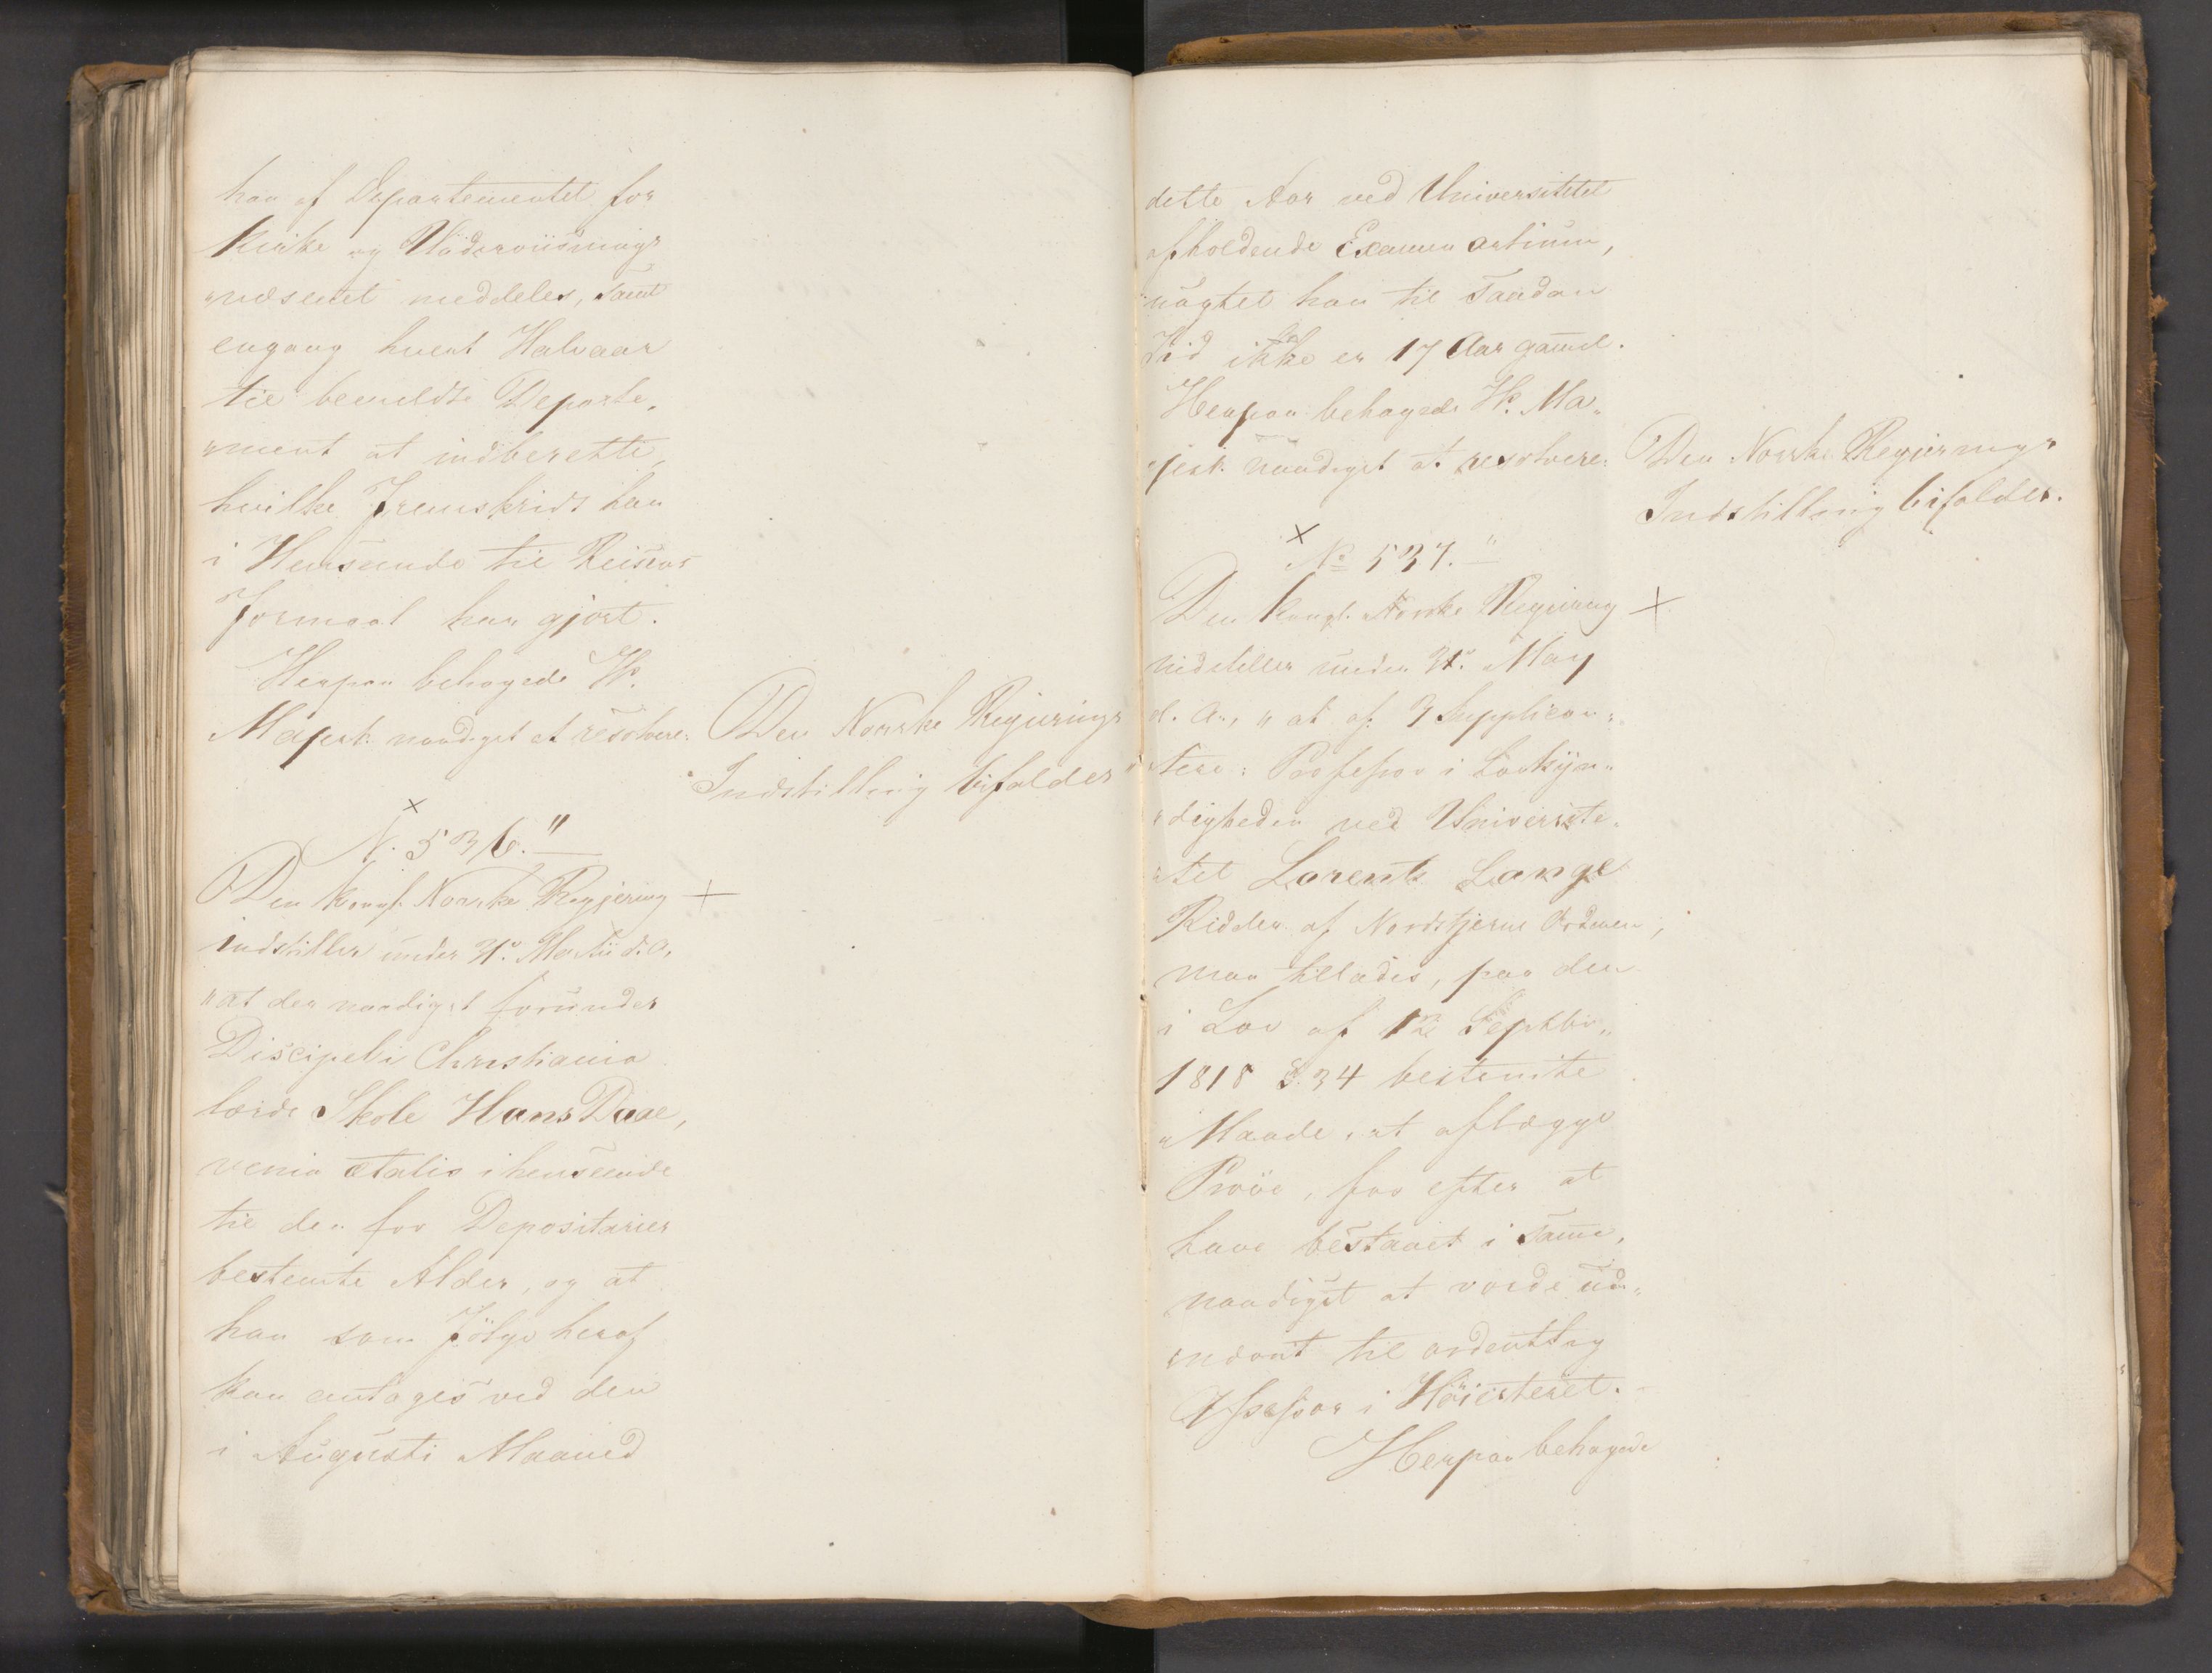 ham af Departementet for
Kirke og Underviisnings
"væsenet meddeles, samt
engang hvert Halvaar
til bemeldte Departe„
"ment at indberette,
hvilke Fremskridt han
i Henseende til Reisens
Formaal har gjort.
Herpaa behagede Hs.
Majest. naadigst at resolvere: Den Norske Regjerings
Indstilling bifaldes
×
N. 536."
Den kongl. Norske Regjering +
indstiller under 31. Martii d. A.
"at der naadigst forundes
Discipel i Christiania
lærde Skole Hans Daae,
venia ætatis i henseende
til den for Depositurier
bestemte Alder, og at
han som Fölge heraf
kan antages ved den
i Augusti Maaned
dette Aar ved Universitetet
afholdende Examen artium,
uagtet han til saadan
Tid ikke er 17 Aar gamel.
Herpaa behagede Hs. Ma„
"jest. naadigst at resolvere: Den Norske Regjerings
Indstilling bifaldes.
×
No 537."
Den kongl. Norske Regjering +
indstiller under 31. May
d. A., "at af 3 Supplican„
"tere: Professor i Lovkÿn„
"digheden ved Universite„
"tet Lorentz Lange
Ridder af Nordstjerne Ordenen,
maa tillades, paa den
i Lov af 12 Septbr„
1818 §. 34 bestemte
Maade, at aflægge
Pröve, for efter at
have bestaaet i samme,
naadigst at vorde ud„
"nævnt til ordentlig
Assessor i Höiesteret.
Herpaa behagede